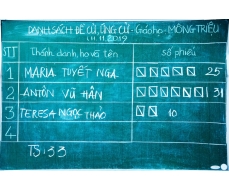 DANH SÁCH ĐỀ CỬ, ỨNG CỬ - Giáo họ - MÔNG TRIỆU
11.11.2019
STT Thánh danh, họ và tên số phiếu
1 MARIA TUYẾT NGA 25
2 ANTÔN VŨ HÂN 31
3 TERESA NGỌC THẢO 10
4
TS: 33